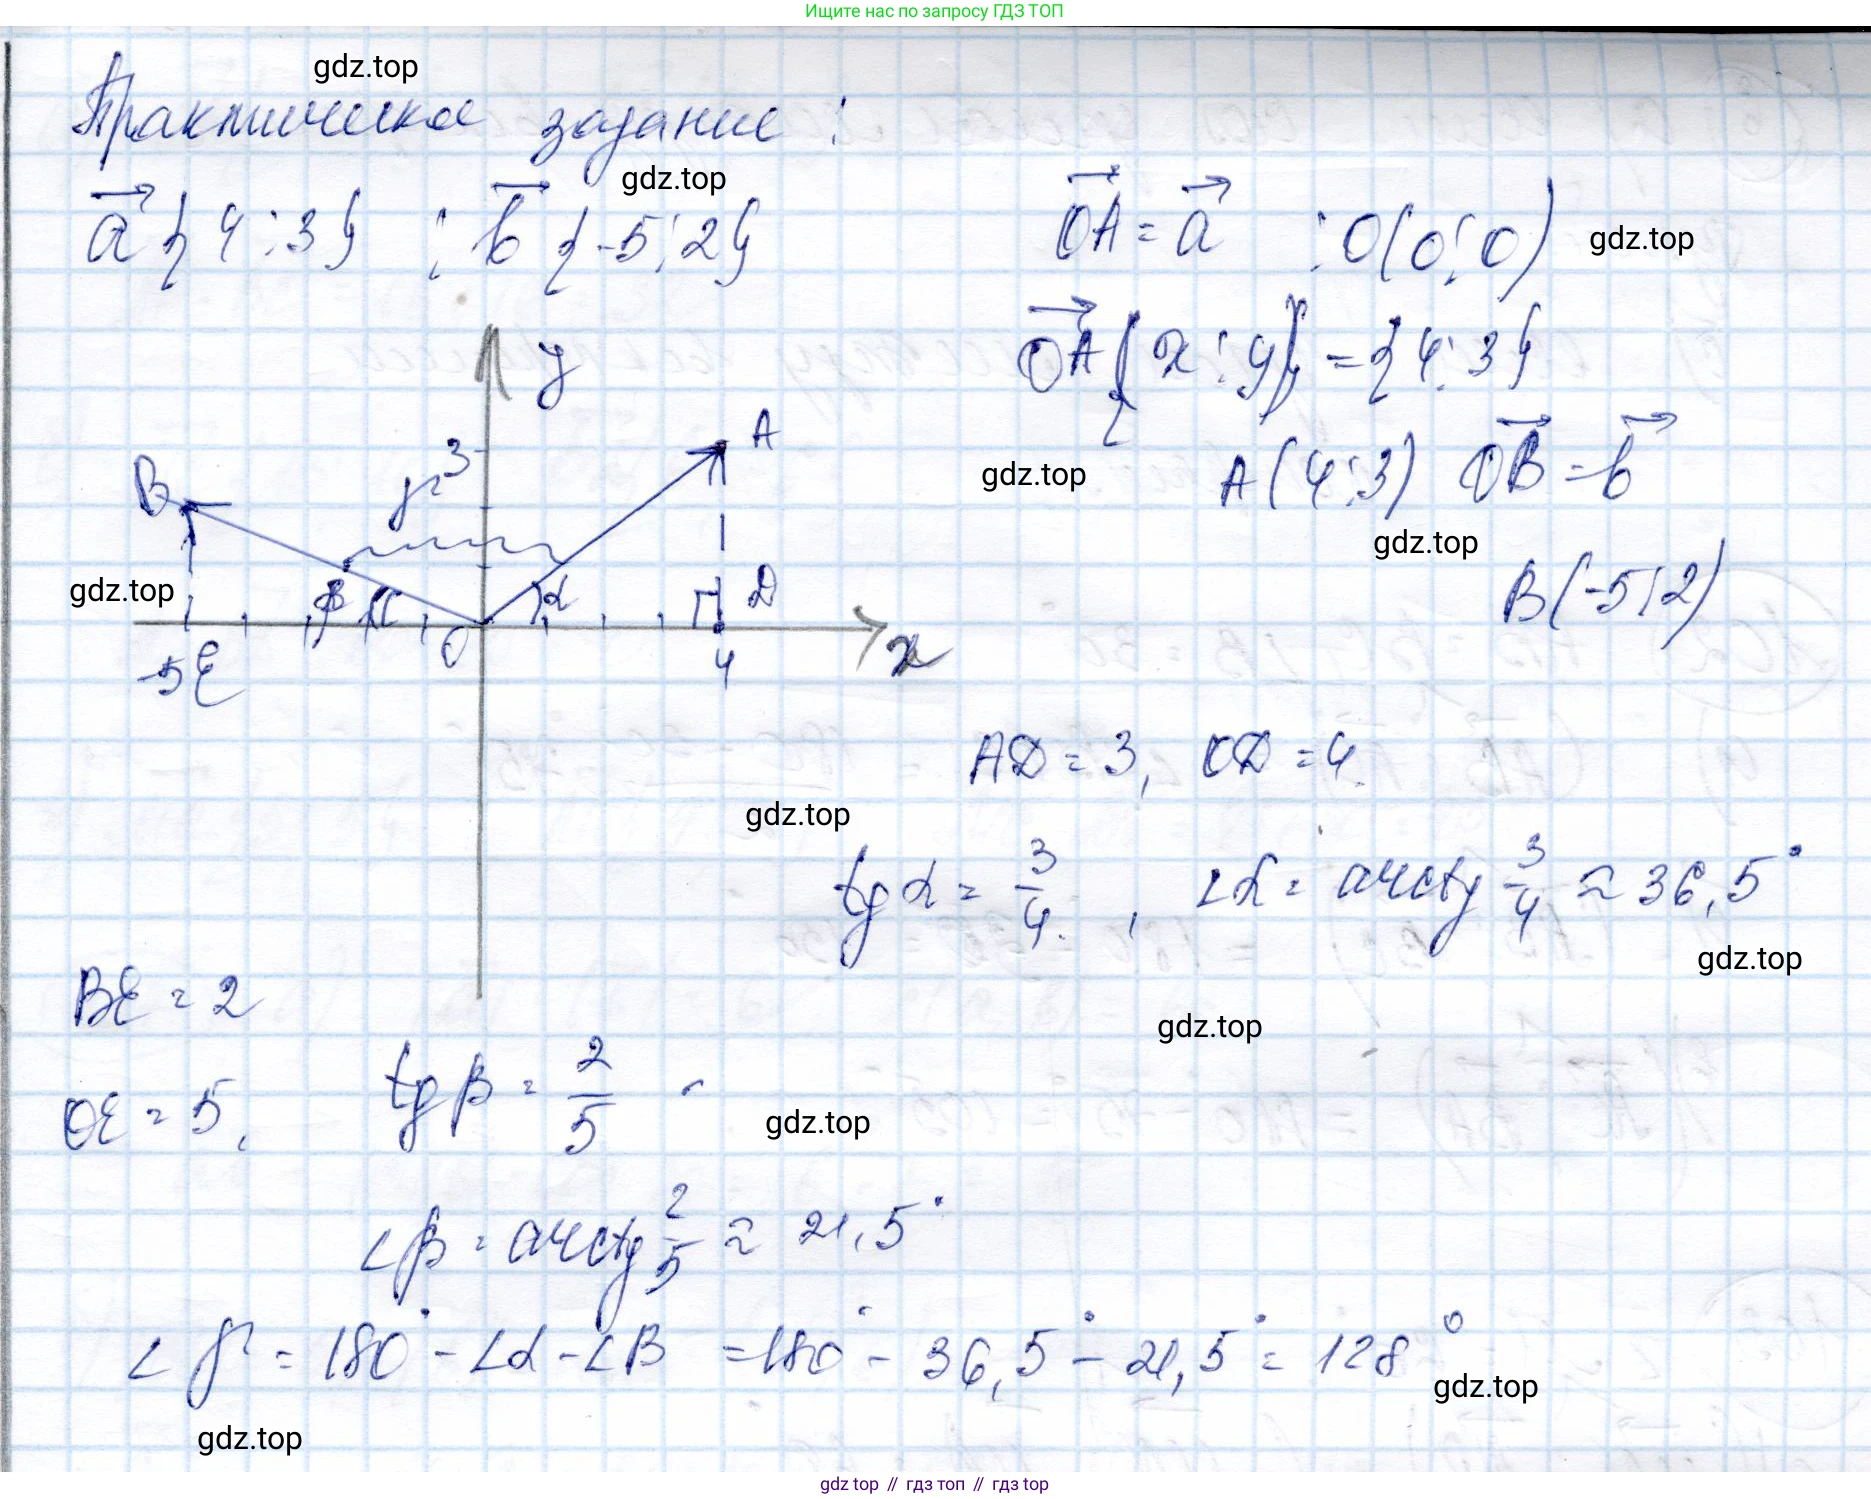 Ищите нас по запросу ГДЗ ТОП
gdz.top
Практическое задание:
gdz.top
a {4;3} ; b {-5;2}
OA = a ; O(0;0)
gdz.top
OA {x;y} = {4;3}
y
A
3
B
γ
gdz.top
A(4;3) OB = b
gdz.top
B(-5;2)
gdz.top
β
α
D
O
x
-5 E
4
AD = 3, OD = 4.
gdz.top
tg α = 3/4 , ∠α = arctg 3/4 ≈ 36,5°
gdz.top
BE = 2
gdz.top
OE = 5, tg β = 2/5
gdz.top
∠β = arctg 2/5 ≈ 21,5°
∠γ = 180° - ∠α - ∠β = 180° - 36,5° - 21,5° = 128°
gdz.top
gdz.top
gdz top // гдз топ // gdz top